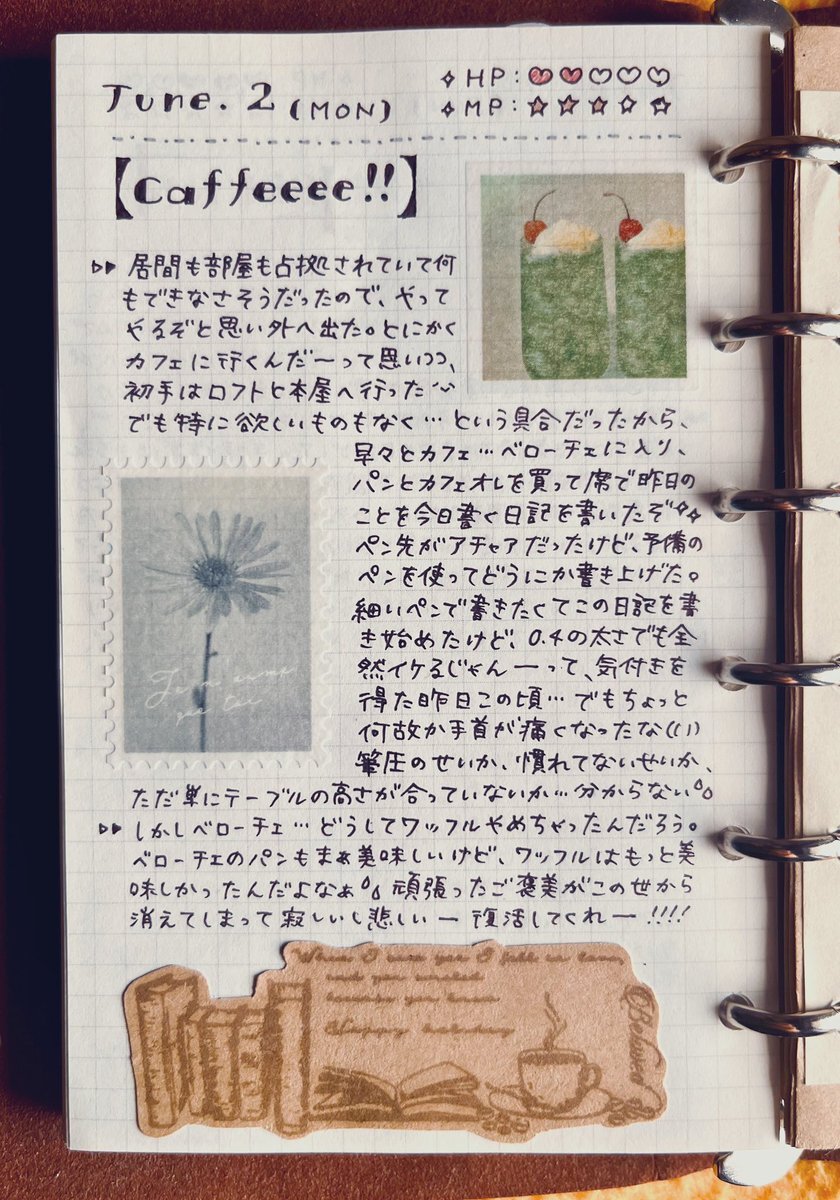 June. 2 (MON)
✧HP:♥♥♡♡♡
✧MP:★★★☆☆
【Caffeeee!!】
▷▶ 居間も部屋も占拠されていて何
もできなさそうだったので、やって
やるぞと思い外へ出た。とにかく
カフェに行くんだーって思いつつ、
初手はロフトと本屋へ行った
でも特に欲しいものもなく…という具合だったから、
早々とカフェ…ベローチェに入り、
パンとカフェオレを買って席で昨日の
ことを今日書く日記を書いたぞ✧✧
ペン先がアチャアだったけど、予備の
ペンを使ってどうにか書き上げた。
細いペンで書きたくてこの日記を書
き始めたけど、0.4の太さでも全
然イケるじゃんーって、気付きを
得た昨日この頃…でもちょっと
何故か手首が痛くなったな
筆圧のせいか、慣れてないせいか、
ただ単にテーブルの高さが合っていないか…分からない
▷▶ しかしベローチェ…どうしてワッフルやめちゃったんだろう。
ベローチェのパンもまぁ美味しいけど、ワッフルはもっと美
味しかったんだよなぁ 頑張ったご褒美がこの世から
消えてしまって寂しいし悲しいー復活してくれー!!!!
When I saw you I fell in love
and you smiled
because you knew
Happy
Beloved